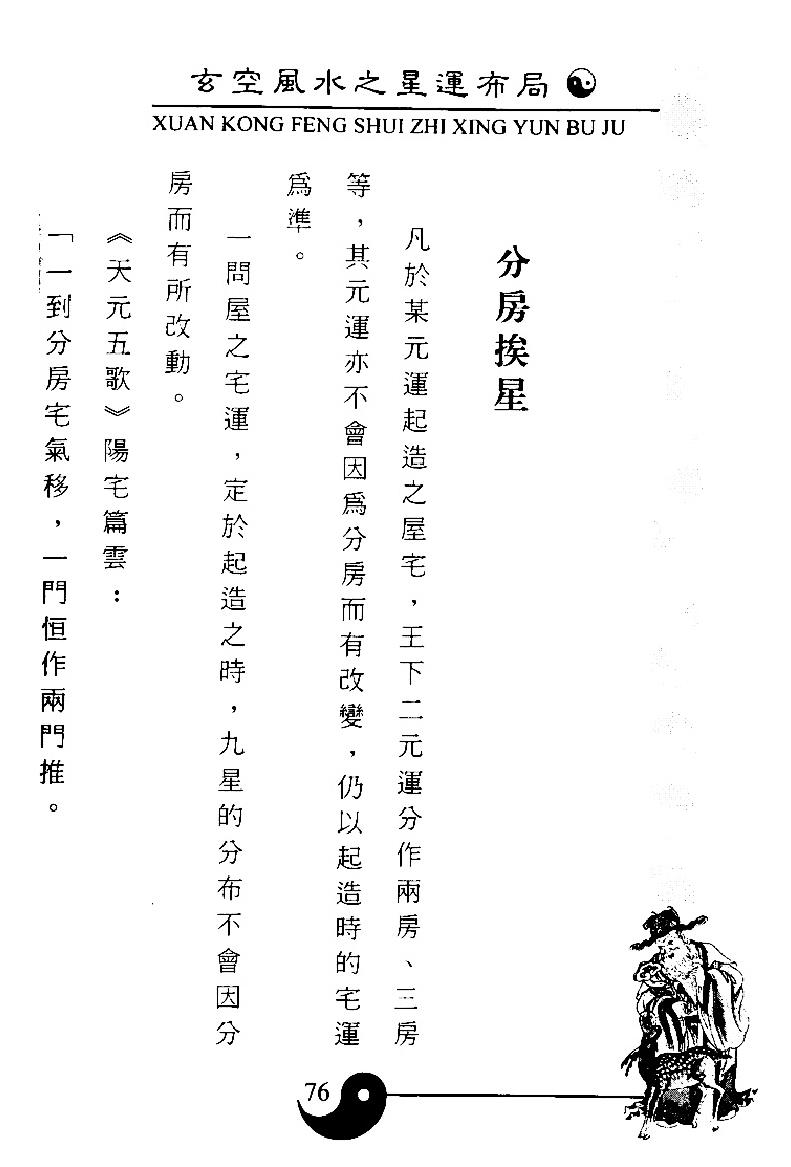 玄空風水之星運布局
XUAN KONG FENG SHUI ZHI XING YUN BU JU
分房挨星
凡於某元運起造之屋宅，王下二元運分作兩房、三房
等，其元運亦不會因爲分房而有改變，仍以起造時的宅運
爲準。
一問屋之宅運，定於起造之時，九星的分布不會因分
房而有所改動。
《天元五歌》陽宅篇雲：
「一到分房宅氣移，一門恒作兩門推。
76